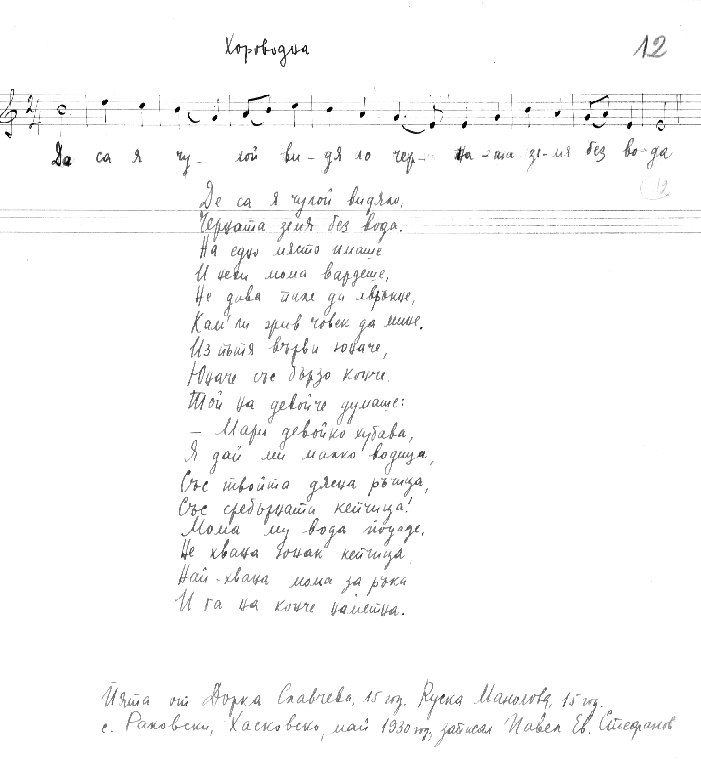 Хороводна
12
Да са я чу- лой ви-дя ло чер- на-та зе-мя без во-да
12
Де са я чулой видяло,
Черната земя без вода.
На едно място имаше
И неви мома вардеше,
Не дава пиле да хвръкне,
Кам ли жив човек да мине.
Из пътя върви юначе,
Юначе със бързо конче.
Той на девойче думаше:
– Мари девойко хубава,
Я дай ми малко водица,
Със твойта дясна ръчица,
Със сребърната кепчица!
Мома му вода подаде,
Не хвана юнак кепчица
Най-хвана мома за ръка
И га на конче наметна.
Пята от Дорка Славчева, 15 год. Руска Манолова, 15 год.
с. Раковски, Хасковско, май 1930 год, записал Павел Ев. Стефанов